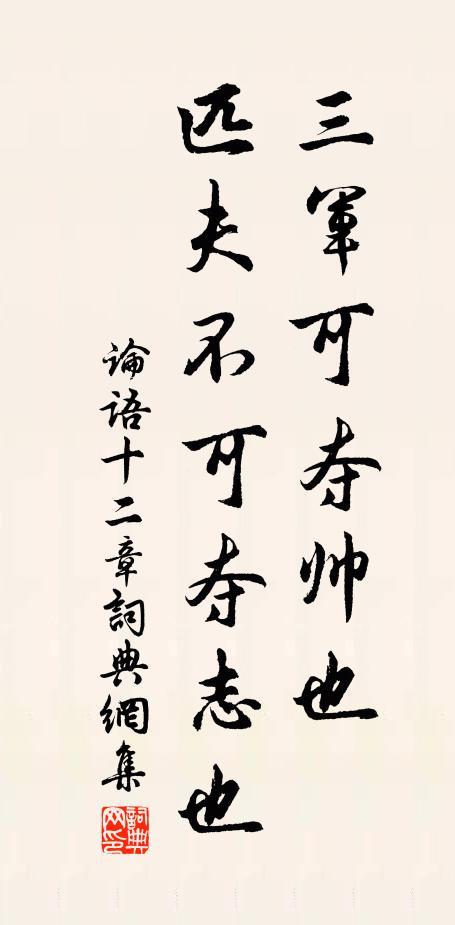 三军可夺帅也
匹夫不可夺志也
论语十二章詞典網集
詞典网印